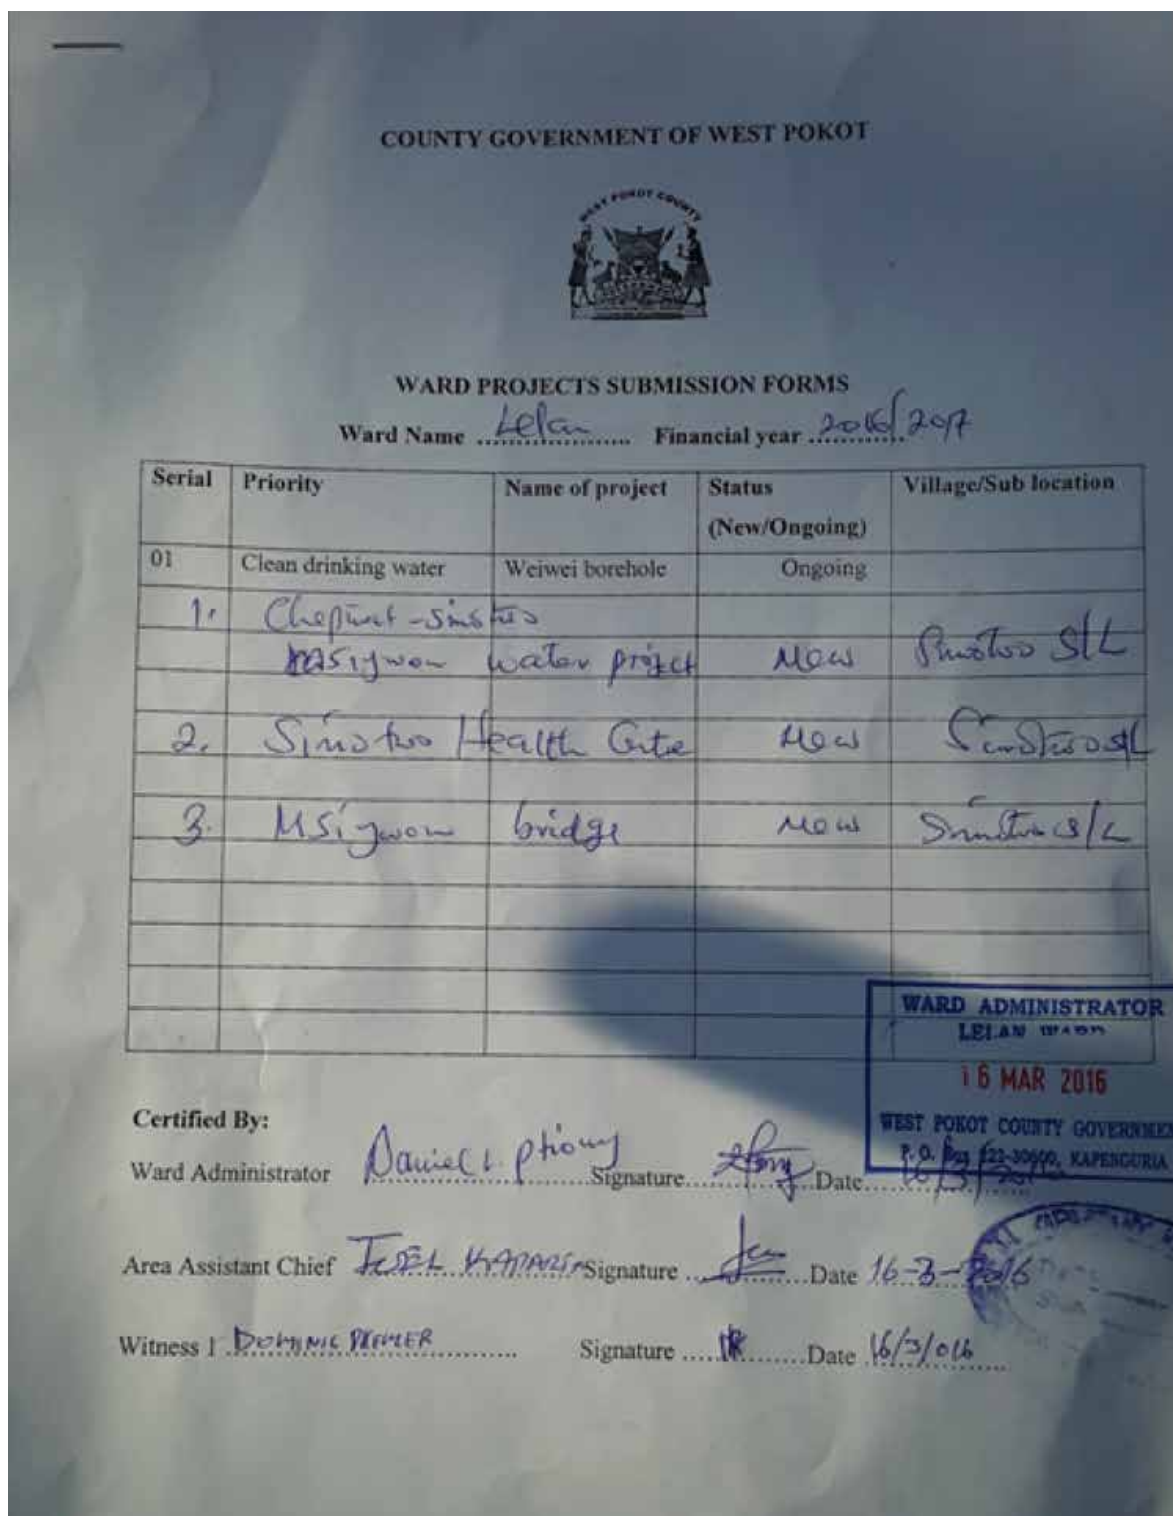 COUNTY GOVERNMENT OF WEST POKOT
WEST POKOT COUNTY
WARD PROJECTS SUBMISSION FORMS
Ward Name Lelan Financial year 2016/2017
Serial Priority Name of project Status (New/Ongoing) Village/Sub location
01 Clean drinking water Weiwei borehole Ongoing
1.
water project New S/L
2. Sinotwo Health New Sinotwo S/L
3. Msigwon bridge New S/L
WARD ADMINISTRATOR
LELAN WARD
16 MAR 2016
WEST POKOT COUNTY
P. O. KAPENGURIA
Certified By:
Ward Administrator Daniel L. Signature Date
Area Assistant Chief Signature Date 16-3-2016
Witness 1 DOMINIC Signature Date 16/3/016